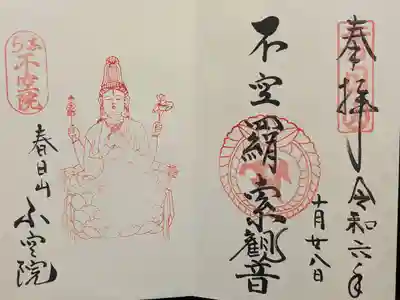 奉拝
令和六年
十月廿八日
不空羂索観音
なら
不空院
春日山
不空院